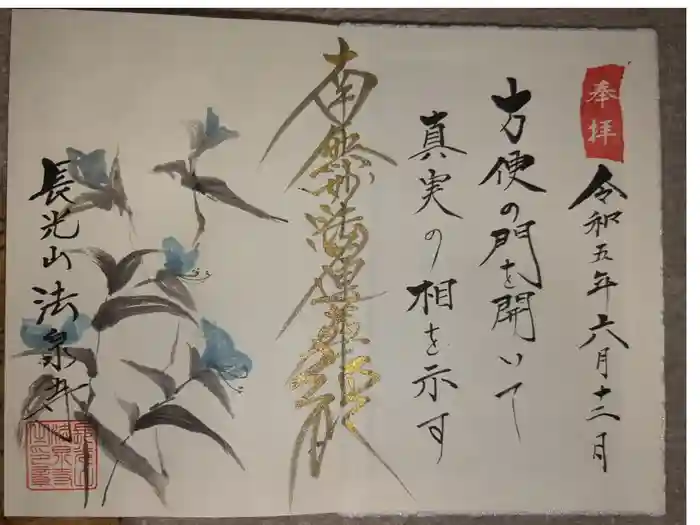 奉拝
令和五年六月十二日
方便の門を開いて
真実の相を示す
南無妙法蓮華経
長光山法泉寺